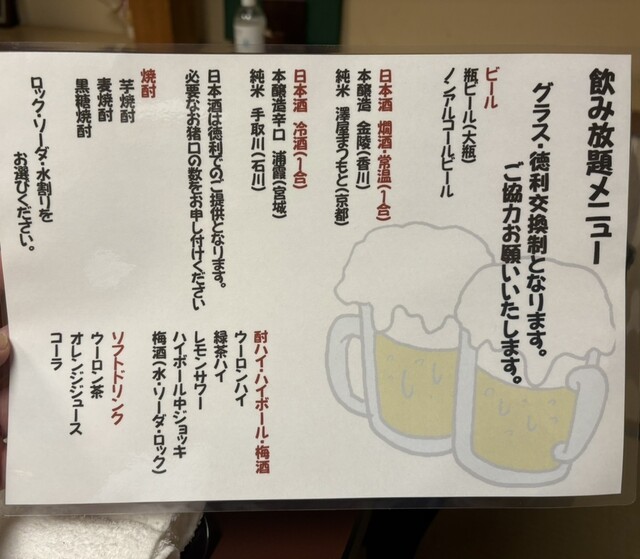 飲み放題メニュー
グラス・徳利交換制となります。
ご協力お願いいたします。
ビール
瓶ビール(大瓶)
ノンアルコールビール
日本酒 燗酒・常温(1合)
本醸造 金陵(香川)
純米 澤屋まつもと(京都)
日本酒 冷酒(1合)
本醸造辛口 浦霞(宮城)
純米 手取川(石川)
日本酒は徳利でのご提供となります。
必要なお猪口の数をお申し付けください
焼酎
芋焼酎
麦焼酎
黒糖焼酎
ロック・ソーダ・水割りを
お選びください。
酎ハイ・ハイボール・梅酒
ウーロンハイ
緑茶ハイ
レモンサワー
ハイボール中ジョッキ
梅酒(水・ソーダ・ロック)
ソフトドリンク
ウーロン茶
オレンジジュース
コーラ